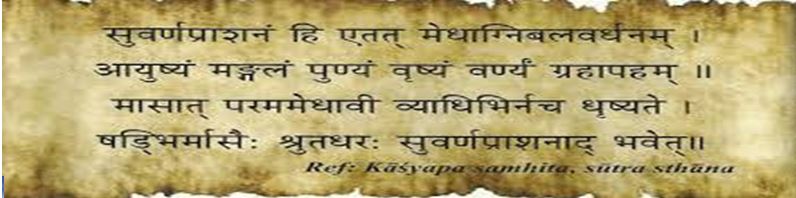 सुवर्णप्राशनं हि एतत् मेधाग्निबलवर्धनम् ।
आयुष्यं मङ्गलं पुण्यं वृष्यं वर्ण्यं ग्रहापहम् ॥
मासात् परममेधावी व्याधिभिर्नच धृष्यते ।
षड्भिर्मासैः श्रुतधरः सुवर्णप्राशनाद् भवेत्॥
Ref: Kāśyapa samhita, sūtra sthāna